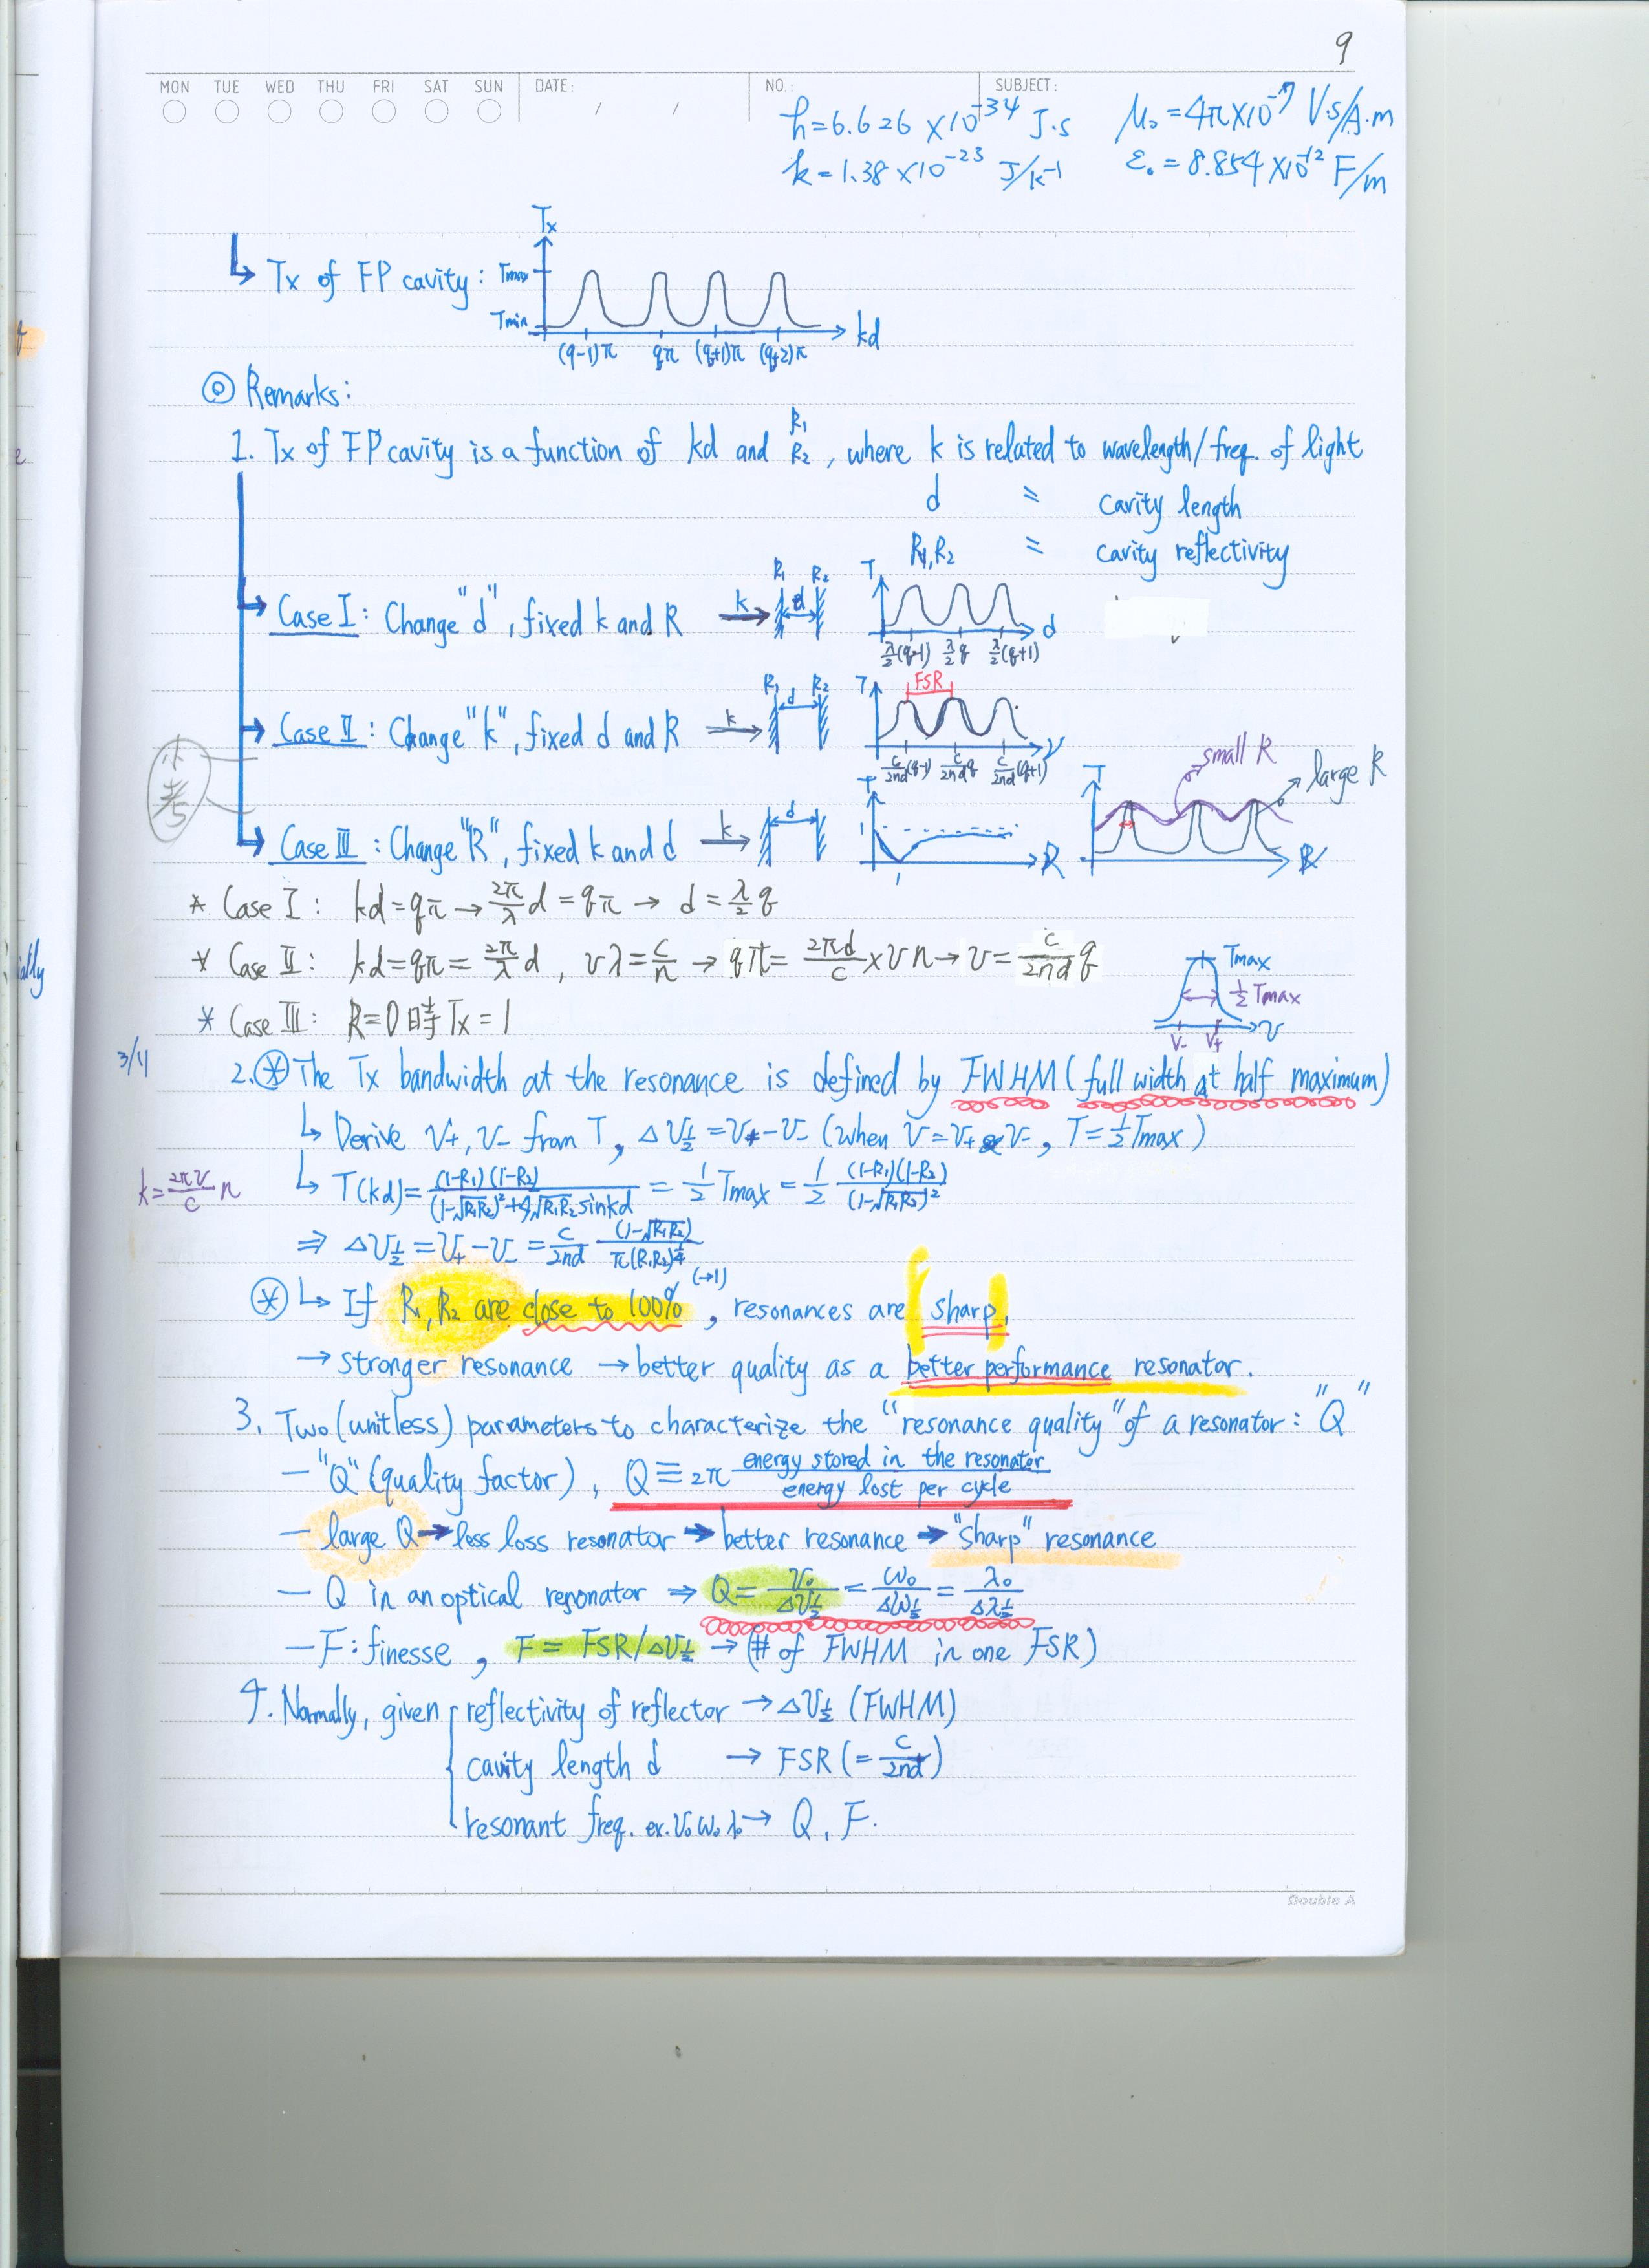 9
MON TUE WED THU FRI SAT SUN DATE: / / NO.: SUBJECT:
h=6.626×10^-34 J·s μ₀=4π×10^-7 V·s/A·m
k=1.38×10^-23 J/k^-1 ε₀=8.854×10^-12 F/m
Tx
↳ Tx of FP cavity: Tmax
Tmin kd
(q-1)π qπ (q+1)π (q+2)π
◎ Remarks:
1. Tx of FP cavity is a function of kd and R₁ R₂, where k is related to wavelength/freq. of light
d 〃 cavity length
R₁,R₂ 〃 cavity reflectivity
→ Case I: Change "d", fixed k and R k R₁ d R₂ T d
λ/2(q-1) λ/2 q λ/2(q+1)
→ Case II: Change "k", fixed d and R k R₁ d R₂ T FSR ν
c/2nd(q-1) c/2nd q c/2nd(q+1)
小考
→ Case III: Change "R", fixed k and d k d T 1 R T small R large R
* Case I: kd=qπ → 2π/λ d = qπ → d = λ/2 q
* Case II: kd=qπ = 2π/λ d, νλ = c/n → qπ = 2πd/c × νn → ν = c/2nd q
* Case III: R=0時 Tx=1
Tmax
½ Tmax
ν- ν+ ν
3/11
2. ⊛ The Tx bandwidth at the resonance is defined by FWHM (full width at half maximum)
↳ Derive ν+, ν- from T, Δν½ = ν+ - ν- (when ν=ν+ or ν-, T=½Tmax)
k = 2πν/c n
↳ T(kd) = (1-R₁)(1-R₂)/((1-√R₁R₂)²+4√R₁R₂ sinkd) = ½ Tmax = ½ (1-R₁)(1-R₂)/(1-√R₁R₂)²
⇒ Δν½ = ν+ - ν- = c/2nd (1-√R₁R₂)/(π(R₁R₂)^¼)
⊛ ↳ If R₁, R₂ are close to 100% (→1), resonances are sharp.
→ stronger resonance → better quality as a better performance resonator.
3. Two (unitless) parameters to characterize the "resonance quality" of a resonator: "Q"
- "Q" (quality factor), Q ≡ 2π energy stored in the resonator / energy lost per cycle
- large Q → less loss resonator → better resonance → "sharp" resonance
- Q in an optical renonator ⇒ Q = ν₀/Δν½ = ω₀/Δω½ = λ₀/Δλ½
- F: finesse, F = FSR/Δν½ → (# of FWHM in one FSR)
4. Normally, given { reflectivity of reflector → Δν½ (FWHM)
cavity length d → FSR (= c/2nd)
resonant freq. ex. ν₀ ω₀ λ₀ → Q, F.
Double A